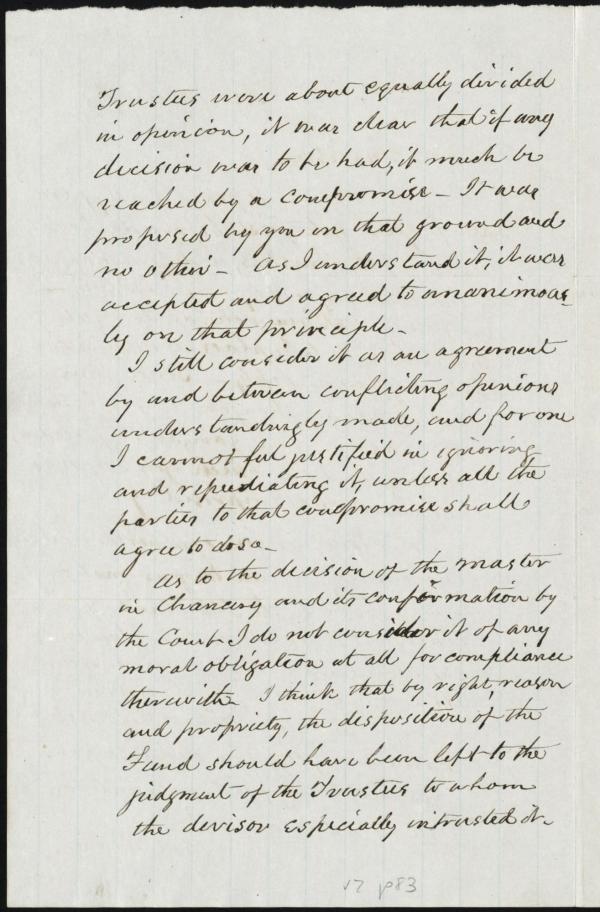 Trustees were about equally divided
in opinion, it was clear that if any
decision was to be had, it much be
reached by a compromise – It was
proposed by you on that ground and
no other – As I understand it, it was
accepted and agreed to unanimous-
ly on that principle –
I still consider it as an agreement
by and between conflicting opinions
understandingly made, and for one
I cannot feel justified in ignoring
and repudiating it, unless all the
parties to that compromise shall
agree to do so –
As to the decision of the Master
in Chancery and its confirmation by
the Court I do not consider it of any
moral obligation at all for compliance
therewith – I think that by right, reason
and propriety, the disposition of the
Fund should have been left to the
judgment of the Trustees to whom
the devisor especially intrusted it –
p83